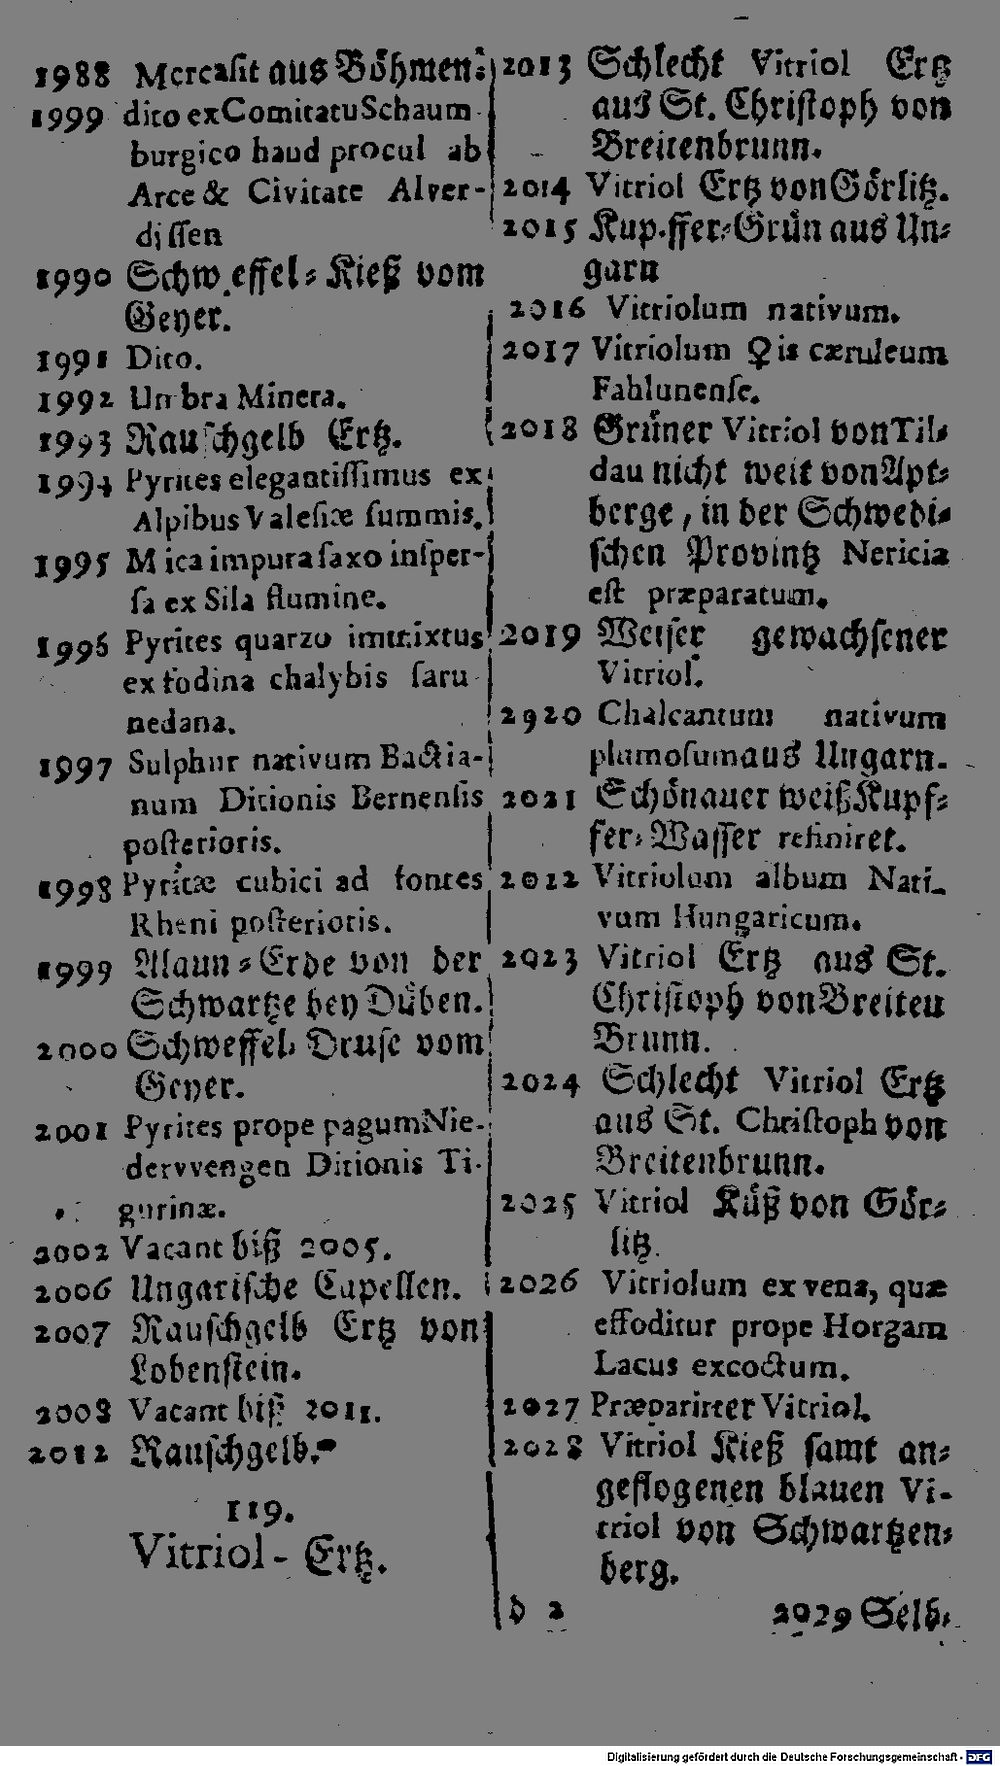 1988 Mercasit aus Böhmen.
1999 dito ex Comitatu Schaum
burgico haud procul ab
Arce & Civitate Alver-
dissen
1990 Schweffel-Kieß vom
Geyer.
1991 Dito.
1992 Umbra Minera.
1993 Rauschgelb Ertz.
1994 Pyrites elegantissimus ex
Alpibus Valesiæ summis.
1995 Mica impura saxo insper-
sa ex Sila flumine.
1996 Pyrites quarzo immixtus
ex fodina chalybis saru
nedana.
1997 Sulphur nativum Bactia-
num Ditionis Bernensis
posterioris.
1998 Pyritæ cubici ad fontes
Rheni posterioris.
1999 Alaun-Erde von der
Schwartze bey Düben.
2000 Schweffel-Druse vom
Geyer.
2001 Pyrites prope pagum Nie-
dervvengen Ditionis Ti-
gurinæ.
2002 Vacant biß 2005.
2006 Ungarische Capellen.
2007 Rauschgelb Ertz von
Lobenstein.
2008 Vacant biß 2011.
2012 Rauschgelb.
119.
Vitriol-Ertz.
2013 Schlecht Vitriol Ertz
aus St. Christoph von
Breitenbrunn.
2014 Vitriol Ertz von Görlitz.
2015 Kupffer-Grün aus Un-
garn
2016 Vitriolum nativum.
2017 Vitriolum ♀is cæruleum
Fahlunense.
2018 Grüner Vitriol von Til-
dau nicht weit von Apt-
berge, in der Schwedi-
schen Provintz Nericia
est præparatum.
2019 Weiser gewachsener
Vitriol.
2920 Chalcantum nativum
plumosum aus Ungarn.
2021 Schönauer weiß Kupf-
fer-Wasser refiniret.
2012 Vitriolum album Nati-
vum Hungaricum.
2023 Vitriol Ertz aus St.
Christoph von Breiten
Brunn.
2024 Schlecht Vitriol Ertz
aus St. Christoph von
Breitenbrunn.
2025 Vitriol Küß von Gör-
litz.
2026 Vitriolum ex vena, quæ
effoditur prope Horgam
Lacus excoctum.
2027 Præparirter Vitriol.
2028 Vitriol Kieß samt an-
geflogenen blauen Vi-
triol von Schwartzen-
berg.
d 2 2029 Selb-
Digitalisierung gefördert durch die Deutsche Forschungsgemeinschaft - DFG